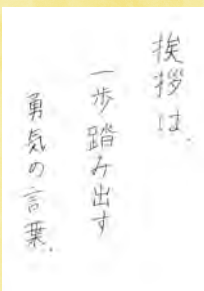 挨拶は
一歩踏み出す
勇気の言葉